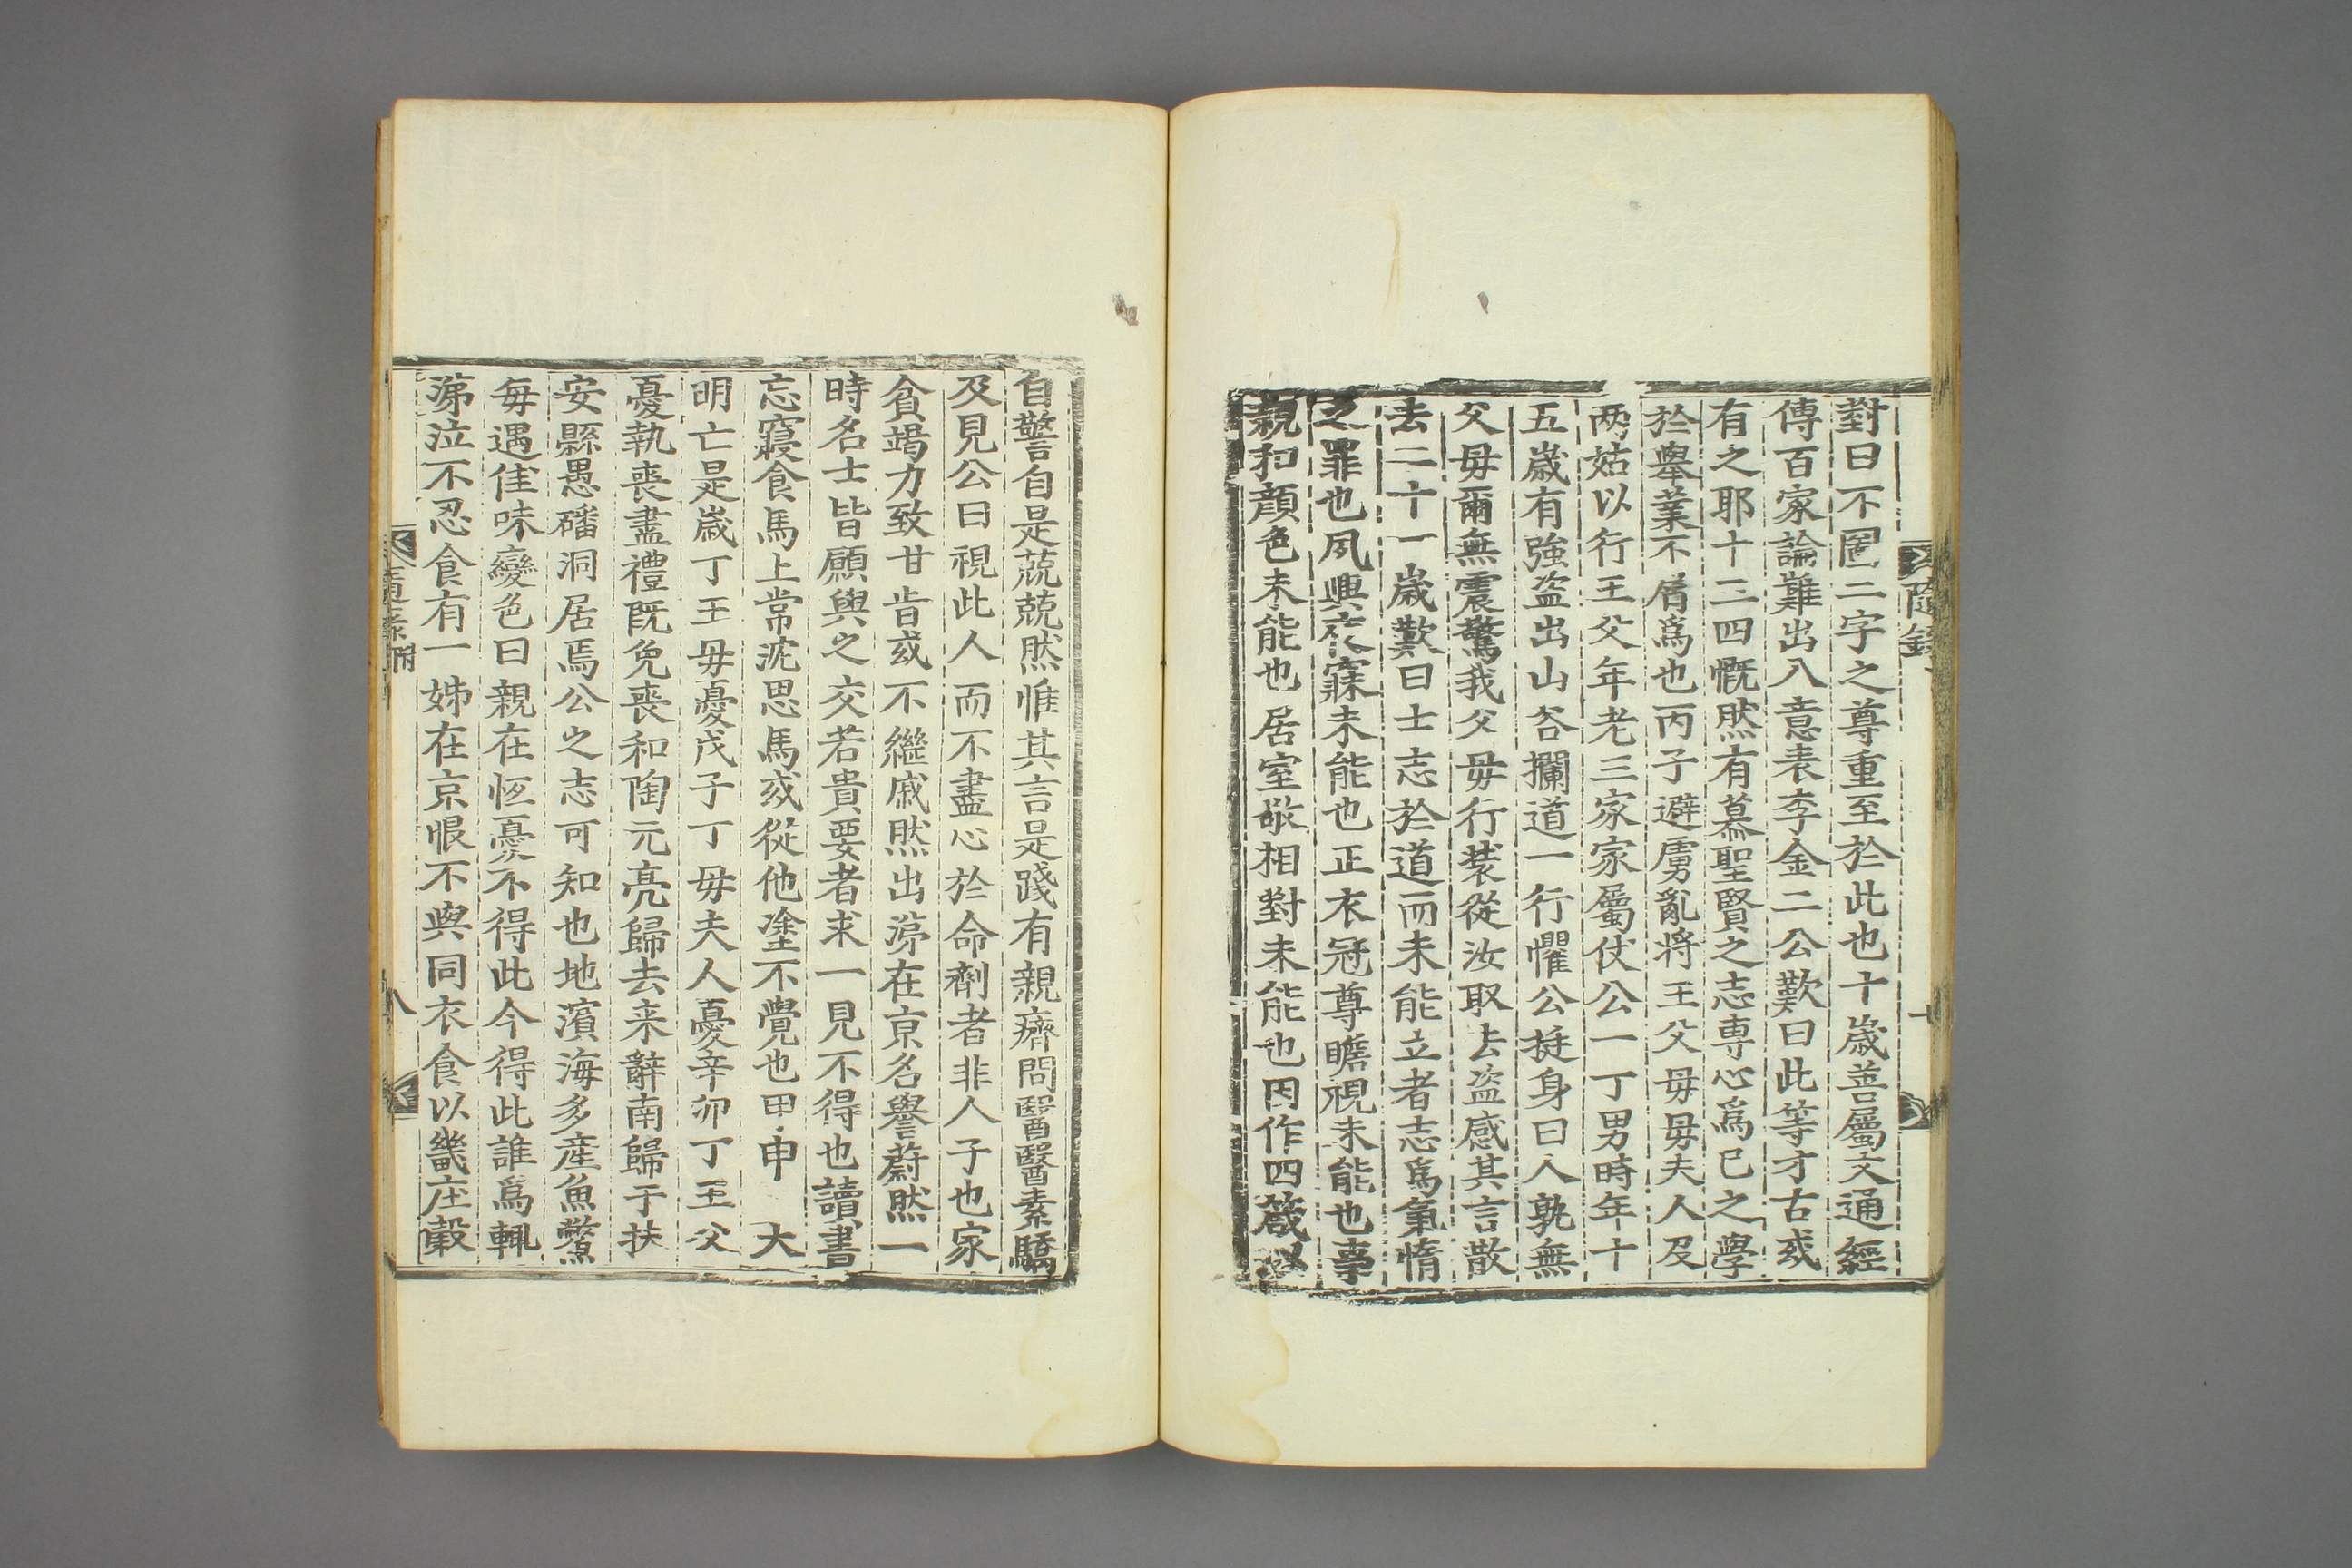 隨錄
七
對曰不圖二字之尊重至於此也十歲善屬文通經
傳百家論難出人意表李金二公歎曰此等才古或
有之耶十三四慨然有慕聖賢之志專心爲己之學
於舉業不屑爲也丙子避虜亂將王父母母夫人及
两姑以行王父年老三家家屬仗公一丁男時年十
五歲有強盜出山谷攔道一行懼公挺身曰人孰無
父母爾無震驚我父母行裝從汝取去盜感其言散
去二十一歲歎曰士志於道而未能立者志爲氣惰
之罪也夙興夜寐未能也正衣冠尊瞻視未能也事
親和顔色未能也居室敬相對未能也因作四箴以
自警自是兢兢然惟其言是踐有親癠問醫醫素驕
及見公曰視此人而不盡心於命劑者非人子也家
貧竭力致甘旨或不繼戚然出涕在京名譽蔚然一
時名士皆願與之交若貴要者求一見不得也讀書
忘寢食馬上常沈思馬或從他塗不覺也甲申 大
明亡是歲丁王母憂戊子丁母夫人憂辛卯丁王父
憂執喪盡禮既免喪和陶元亮歸去来辭南歸于扶
安縣愚磻洞居焉公之志可知也地濱海多産魚鱉
每遇佳味變色曰親在恒憂不得此今得此誰爲輒
涕泣不忍食有一姊在京恨不與同衣食以畿庄穀
隨錄附
八